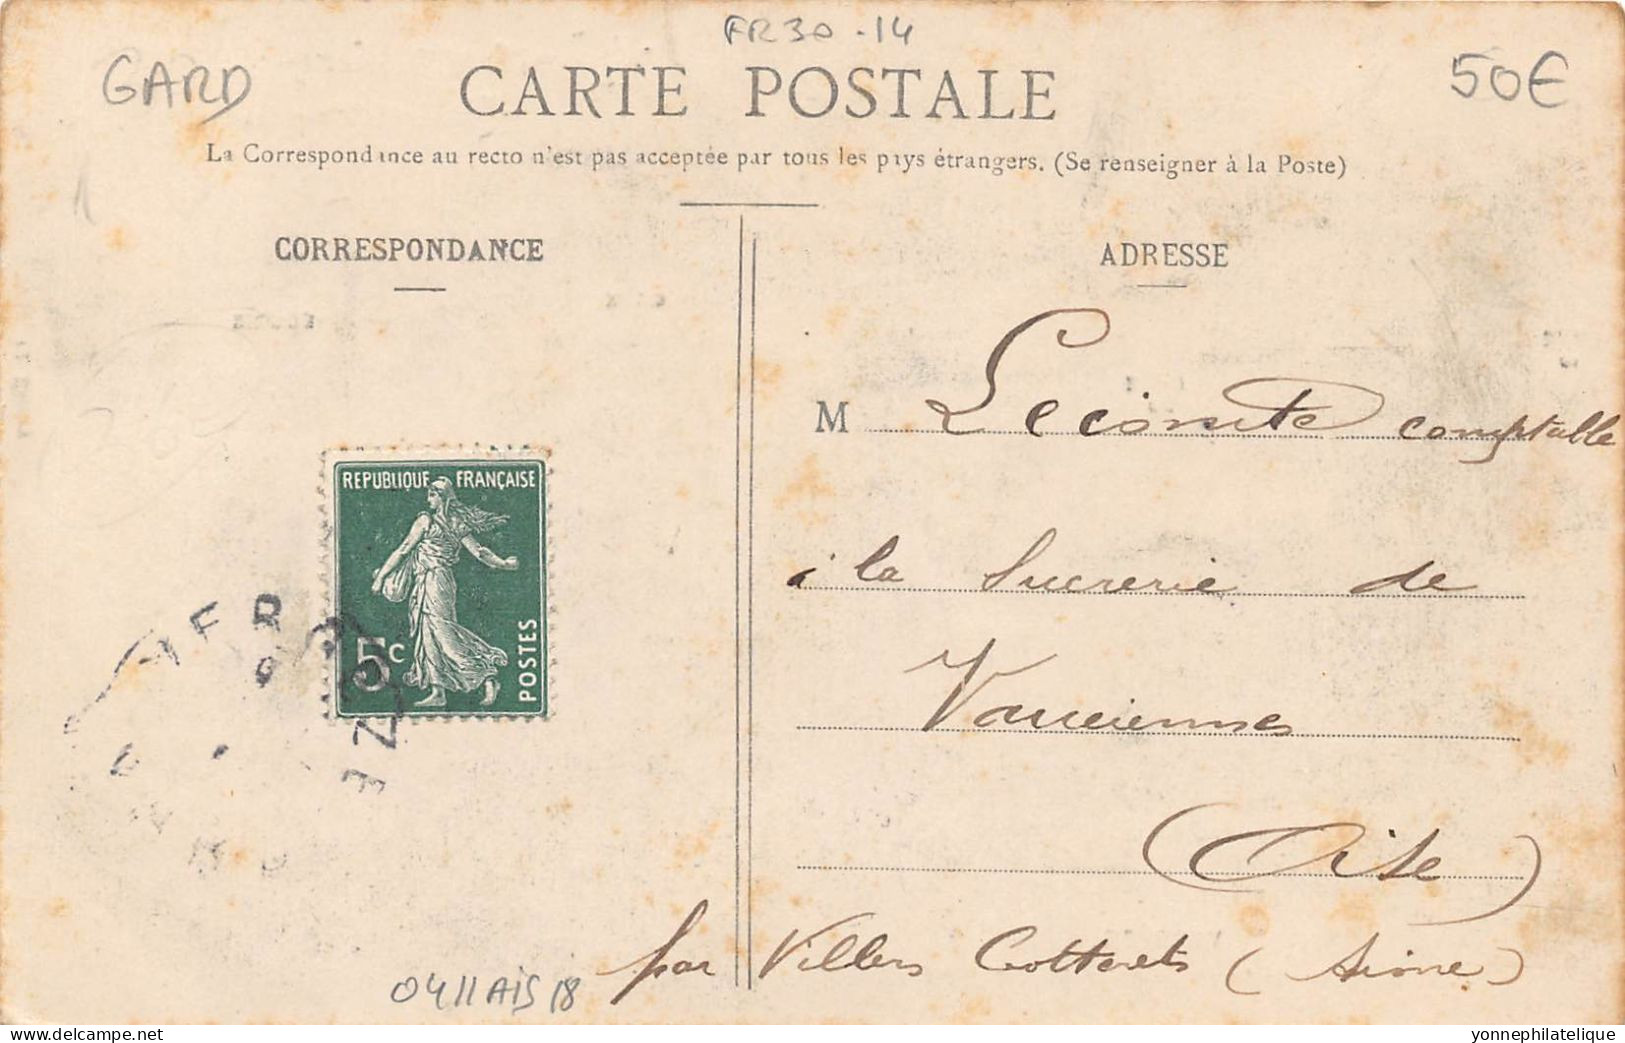 FR30-14
GARD
50€
CARTE POSTALE
La Correspondance au recto n'est pas acceptée par tous les pays étrangers. (Se renseigner à la Poste)
CORRESPONDANCE
ADRESSE
M Lecomte comptable
à la Sucrerie de
Vauciennes
(Oise)
par Villers Cotterets (Aisne)
REPUBLIQUE FRANÇAISE
5c
POSTES
0411AIS18
delcampe.net
yonnephilatelique